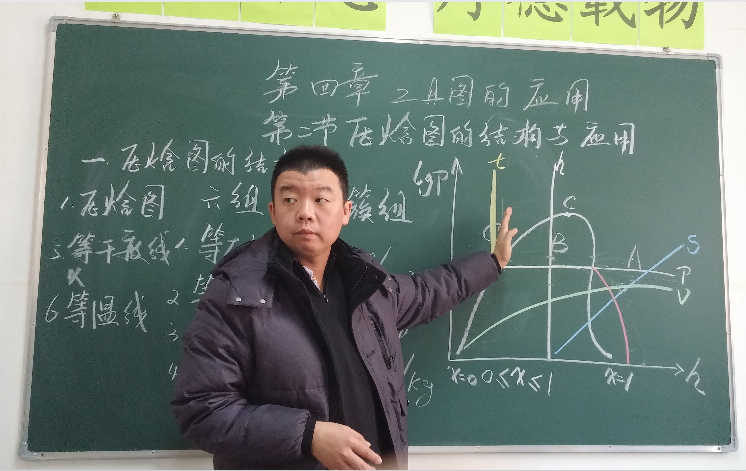 厚德载物
第四章 工具图的应用
第二节 压焓图的结构与应用
一、压焓图的结
1. 压焓图 六组 簇组
5. 等干度线 1. 等
x
6 等温线 2
3
4
kg
lgP
t
h
C
B
A
S
P
V
x=0 0≤x≤1 x=1
h